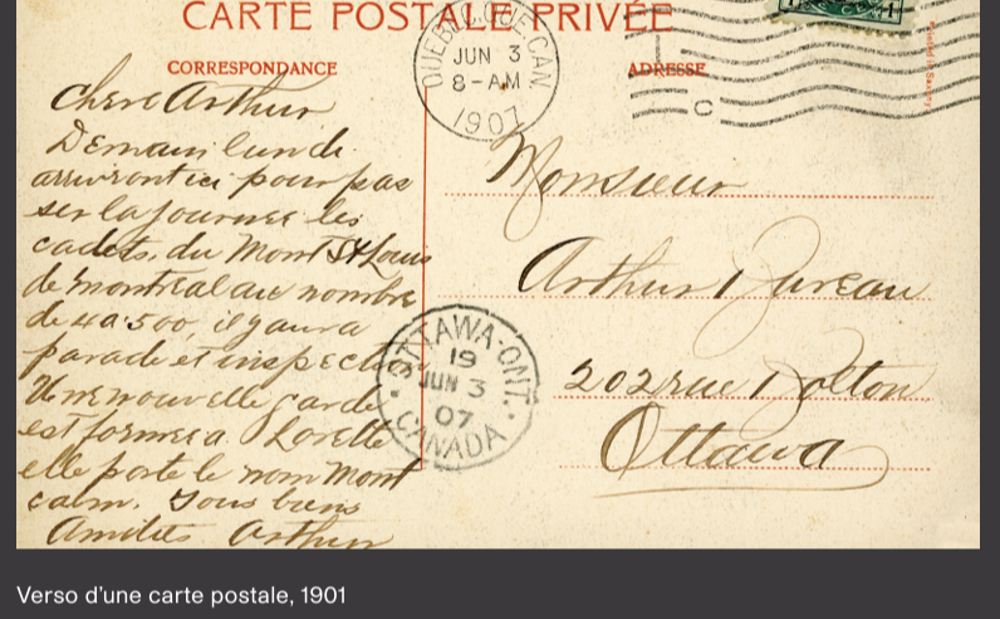 CARTE POSTALE PRIVÉE
CORRESPONDANCE
ADRESSE
QUEBEC, QUE. CAN
JUN 3
8-AM
1907
C
Printed in Saxony
Chere Arthur
Demain lundi
arriveront ici pour pas
ser la journee les
cadets, du Mont St Louis
de montreal au nombre
de 4 a 500, il y aura
parade et inspection
Une nouvelle garde
est formee a Lorette
elle porte le nom Mont
calm. Tous biens
Amities Arthur
Monsieur
Arthur Bureau
202 rue Bolton
Ottawa
OTTAWA-ONT.
19
JUN 3
07
CANADA
Verso d’une carte postale, 1901